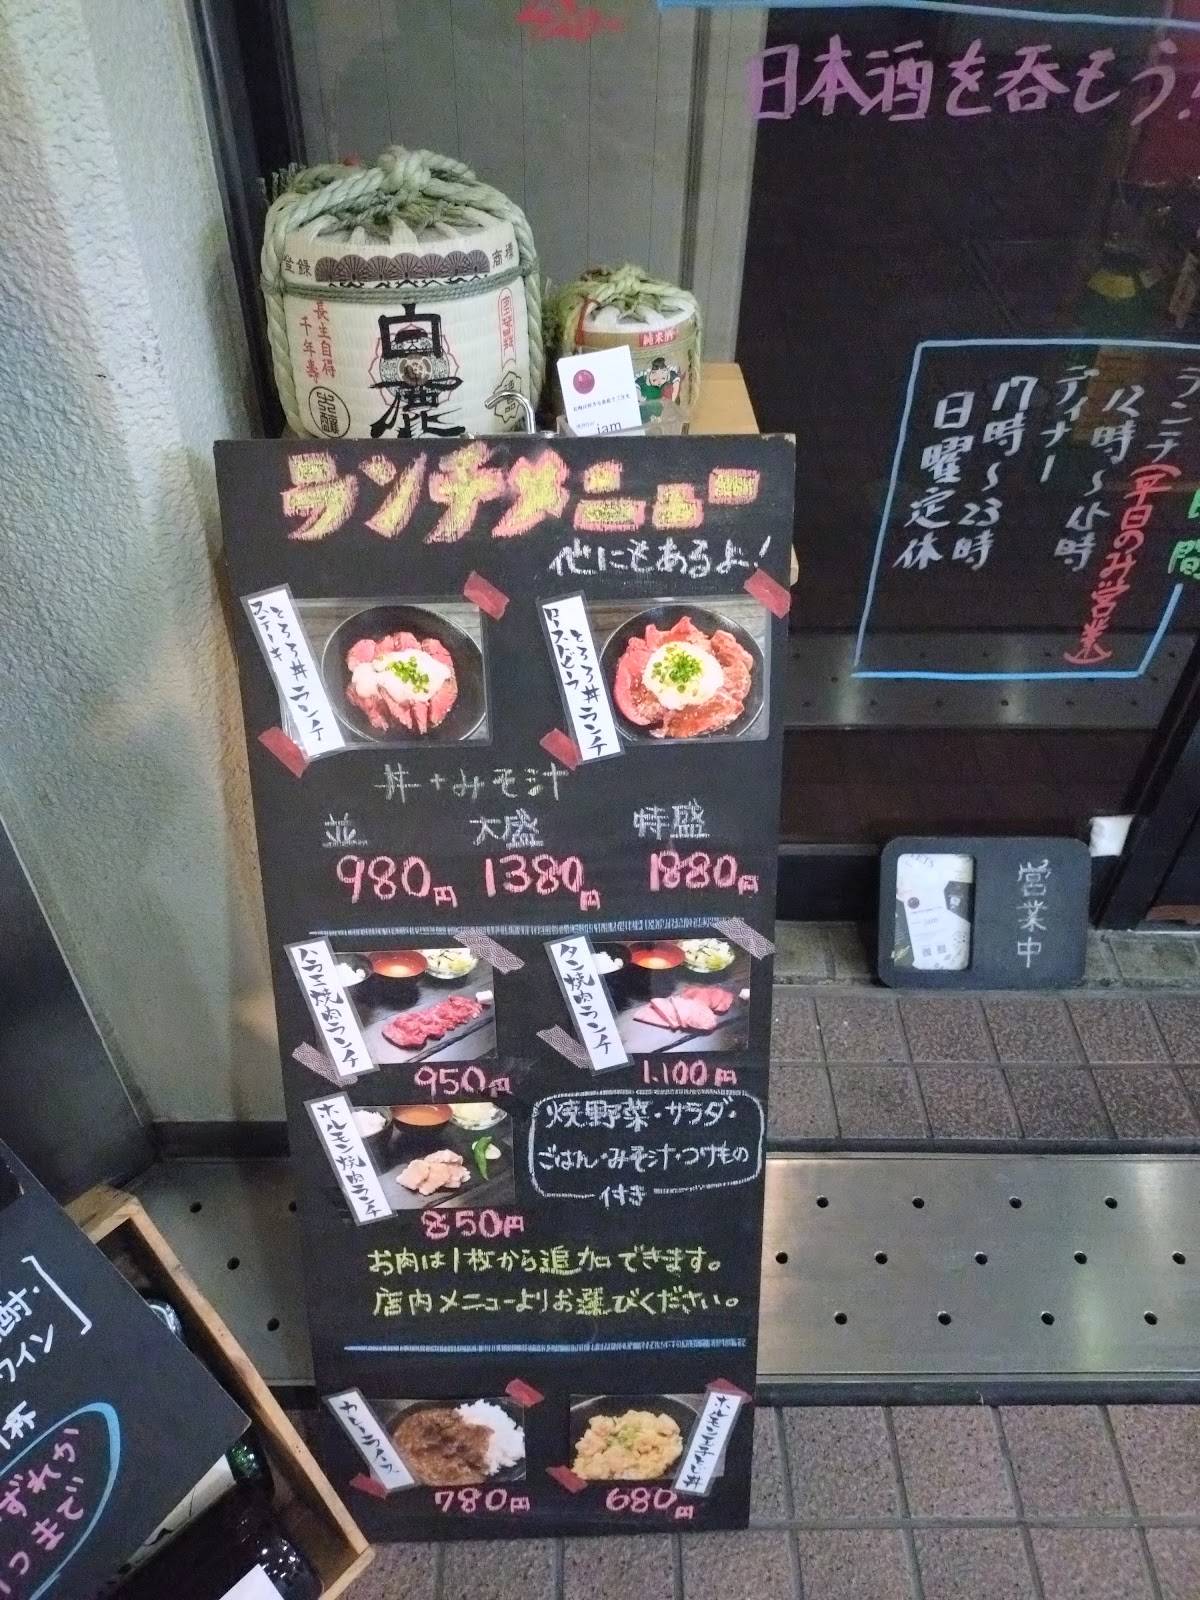 日本酒を呑もう!
ランチ(平日のみ営業)
ディナー
17時～23時
日曜定休
間
登録
商標
長生自得
千年寿
白鹿
純米酒
jam
ランチメニュー
他にもあるよ!
ステーキ
とろろ丼ランチ
ローストビーフ
とろろ丼ランチ
丼+みそ汁
並 大盛 特盛
980円 1380円 1880円
ハラミ焼肉ランチ
タン焼肉ランチ
950円
1.100円
ホルモン焼肉ランチ
焼野菜・サラダ・
ごはん・みそ汁・つけもの
付き
850円
お肉は1枚から追加できます。
店内メニューよりお選びください。
カレーライス
ホルモン玉子とじ丼
780円
680円
営業中
jam
ワイン
ずれか
つまで